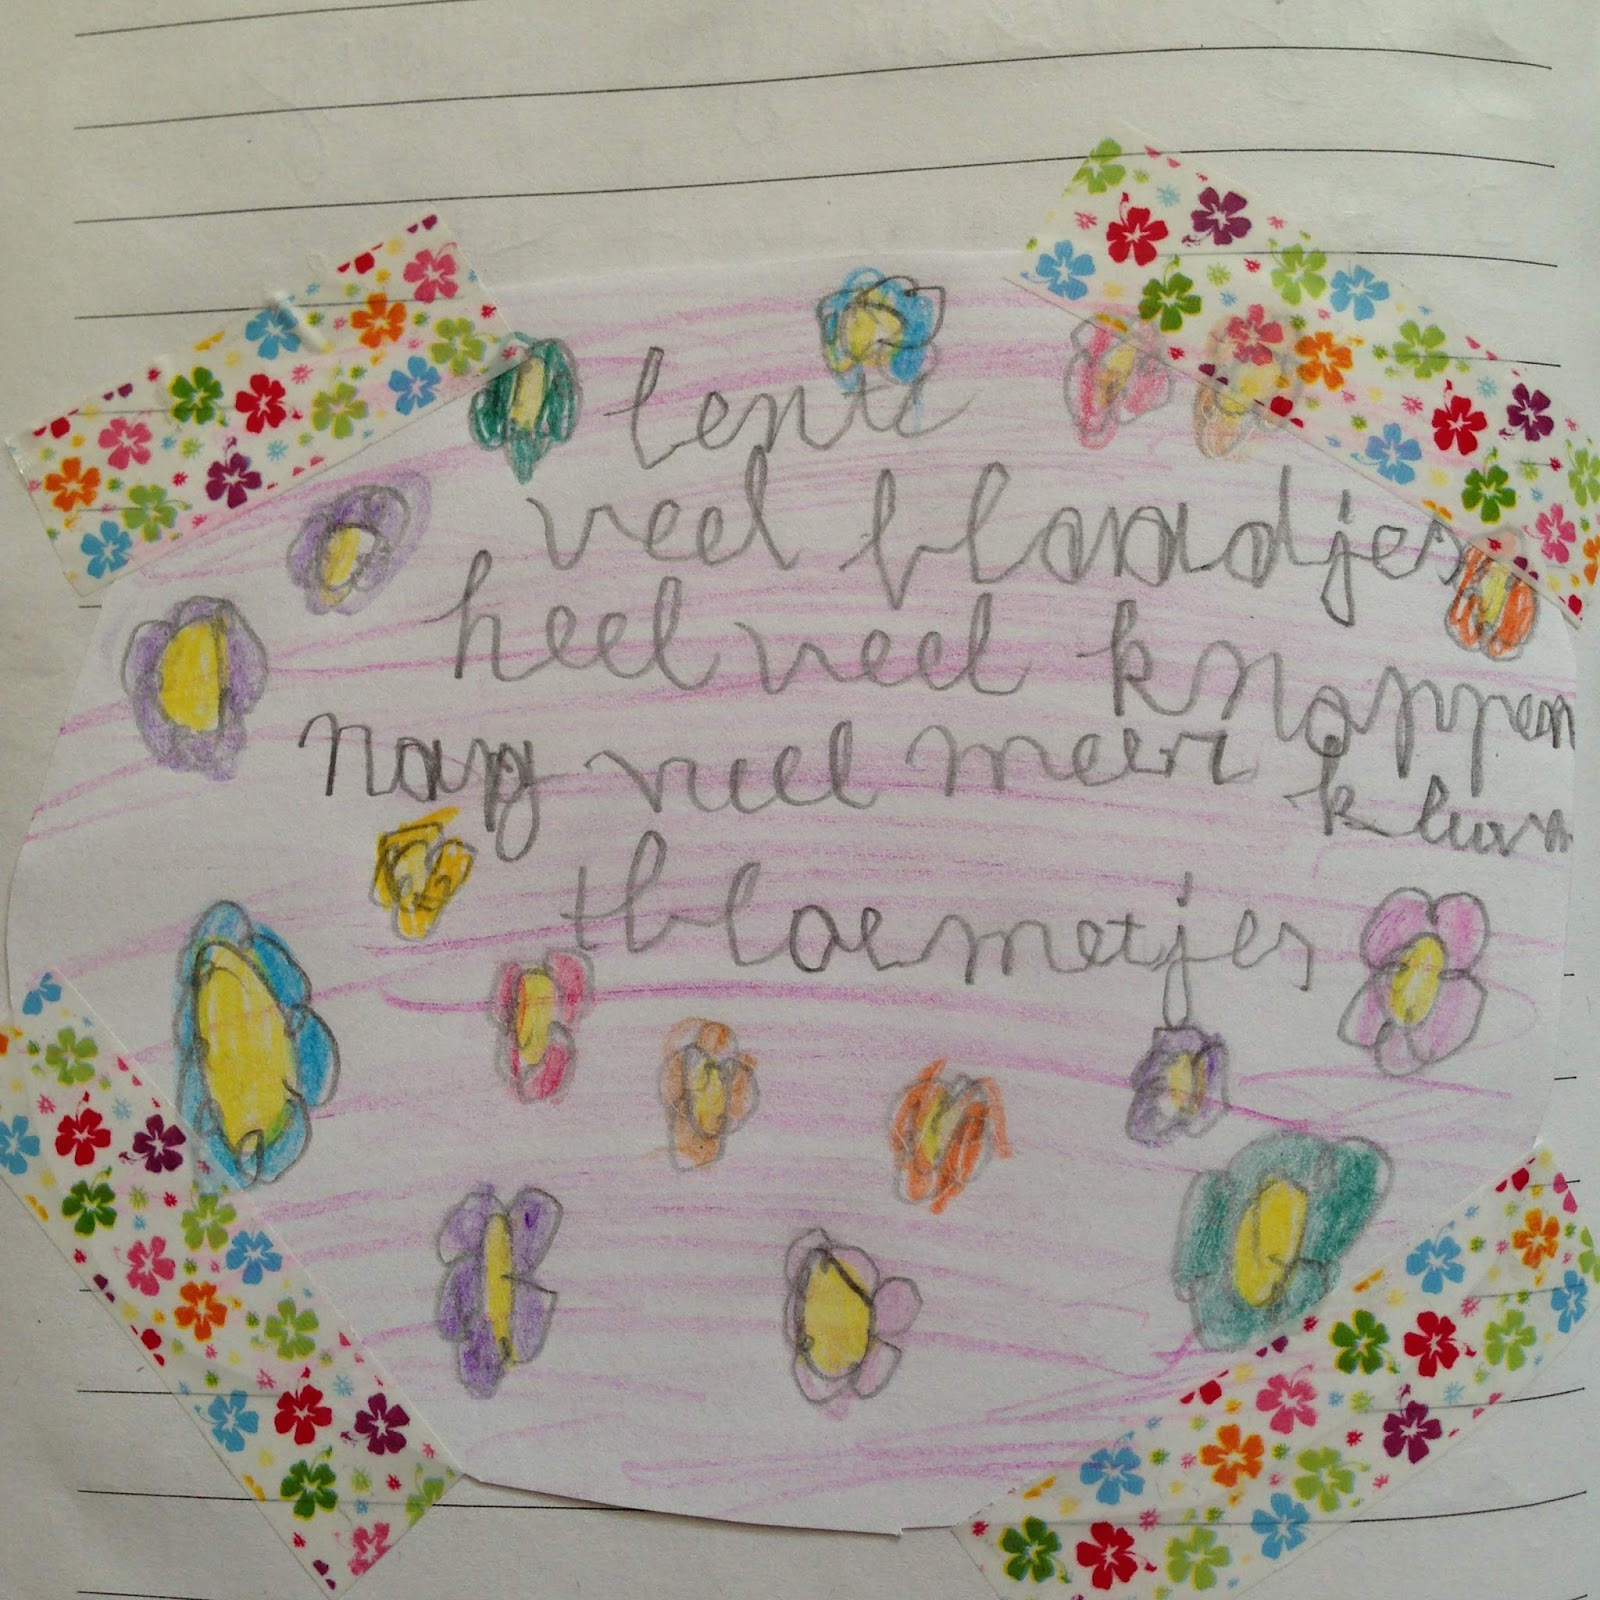 lente
veel blaadjes
heel veel knoppen
nog veel meer
bloemetjes